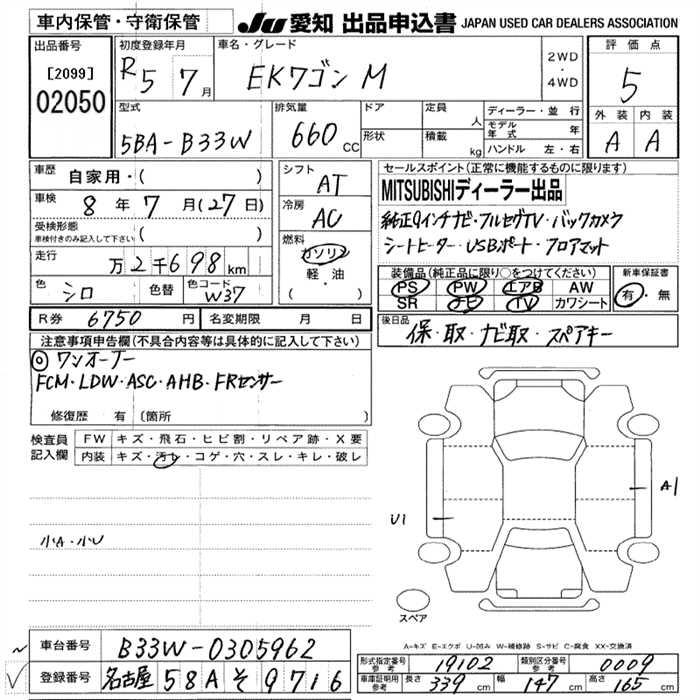 車内保管・守衛保管
JU 愛知 出品申込書 JAPAN USED CAR DEALERS ASSOCIATION
出品番号
[2099]
02050
初度登録年月
R5 7月
車名・グレード
EKワゴン M
2WD
・
4WD
評価点
5
外装 内装
A A
型式
5BA-B33W
排気量
660 CC
ドア
定員 人
形状
積載 kg
ディーラー・並行
モデル年式 年
ハンドル 左・右
車歴
自家用・( )
車検
8年7月(27日)
受検形態
車検付きのみ記入して下さい ( )
走行
万2千698km
色
シロ
色替
色コード
W37
シフト
AT
冷房
AC
燃料
ガソリン
軽・油
( )
セールスポイント(正常に機能するものに限ります)
MITSUBISHIディーラー出品
純正9インチナビ・フルセグTV・バックカメラ
シートヒーター・USBポート・フロアマット
装備品(純正品に限り○をつけてください)
PS PW エアB AW
SR ナビ TV カワシート
新車保証書
有・無
R券 6750円
名変期限 月 日
後日品
保・取・ナビ取・スペアキー
注意事項申告欄(不具合内容等は具体的に記入して下さい)
◎ワンオーナー
FCM・LDW・ASC・AHB・FRセンサー
修復歴 有 〔箇所 〕
検査員
記入欄
FW キズ・飛石・ヒビ割・リペア跡・X要
内装 キズ・汚レ・コゲ・穴・スレ・キレ・破レ
小A・小U
U1
A1
スペア
A-キズ E-エクボ U-凹み W-補修跡 S-サビ C-腐食 XX-交換済
車台番号
B33W-0305962
登録番号
名古屋 58A そ 9716
形式指定番号
参考
19102
類別区分番号
参考
0009
車庫証明用
参考
長さ 339 cm 幅 147 cm 高さ 165 cm